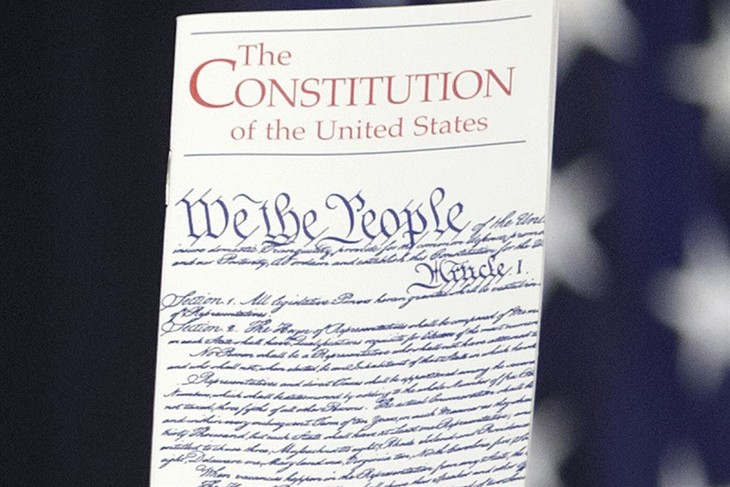 The
CONSTITUTION
of the United States
We the People of the
insure domestic Tranquility, provide for the common defence,
and our Posterity, do ordain and establish this Constitution for the
Article I.
Section 1. All legislative Powers herein granted shall be vested in
of Representatives.
Section 2. The House of Representatives shall be composed of
in each State shall have Qualifications requisite for Electors of the most
No Person shall be a Representative who shall not have attained to
and who shall not, when elected, be an Inhabitant of that State in which he
Representatives and direct Taxes shall be apportioned among the several
Numbers, which shall be determined by adding to the whole Number of free
not taxed, three fifths of all other Persons. The actual Enumeration shall be
and within every subsequent Term of ten Years, in such Manner as they shall
thirty Thousand, but each State shall have at Least one Representative;
entitled to chuse three, Massachusetts eight, Rhode Island and Providence
eight, Delaware one, Maryland six, Virginia ten, North Carolina five,
When vacancies happen in the Representation from any State, the